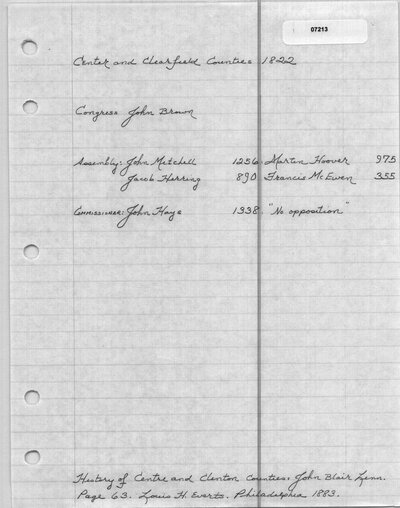 07213
Center and Clearfield Counties 1822
Congress John Brown
Assembly: John Mitchell 1256 Martin Hoover 975
Jacob Herring 890 Francis McEwen 355
Commissioner: John Hays 1338 "No opposition"
History of Centre and Clinton Counties: John Blair Linn.
Page 63. Louis H. Everts. Philadelphia 1883.